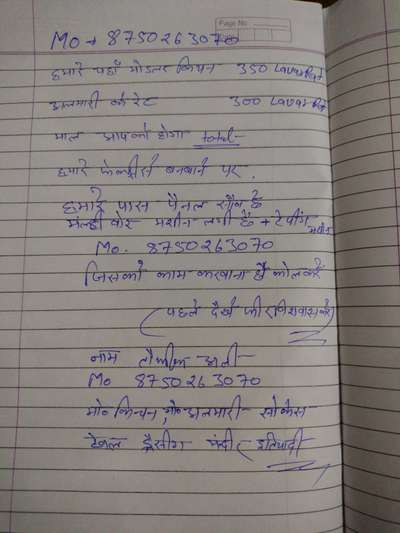 Page No.
MO → 8750263070
हमारे यहाँ मोडलर किचन 350 Lavar Rat
अलमारी का रेट 300 Lavar Rat
माल आपका होगा total
हमारे बनवाने पर.
हमारे पास पैनल सौव है
मल्टी बोर मशीन लगी है + टेपींग मशीन
Mo. 8750263070
जिसको काम करवाना हो कोल करें
(पहले देखें फीर विशवास करें)
नाम तौफीक अली
Mo 8750263070
मो० किचन, मो० अलमारी सोकेस
टेबल ड्रैसींग इतियादी